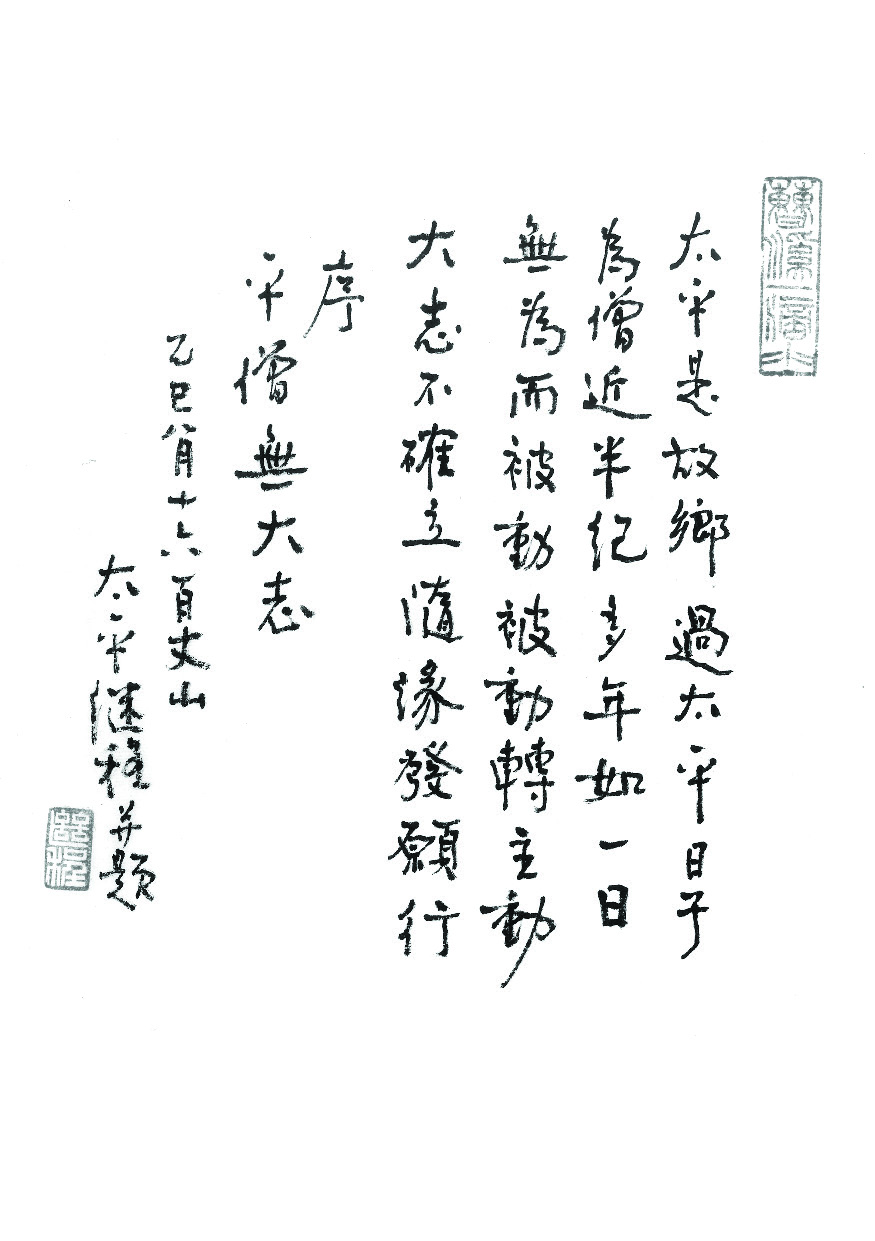 太平是故鄉 過太平日子
為僧近半紀 多年如一日
無為而被動 被動轉主動
大志不確立 隨緣發願行
序
平僧無大志
乙巳八月十六百丈山
太平继程并題